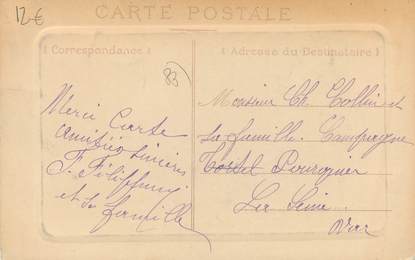 12€
CARTE POSTALE
Correspondance
Adresse du Destinataire
83
Merci Carte
Amitiés sincères
F.
et sa famille
Monsieur Ch. Collin et
sa famille. Campagne
La Seine
Var